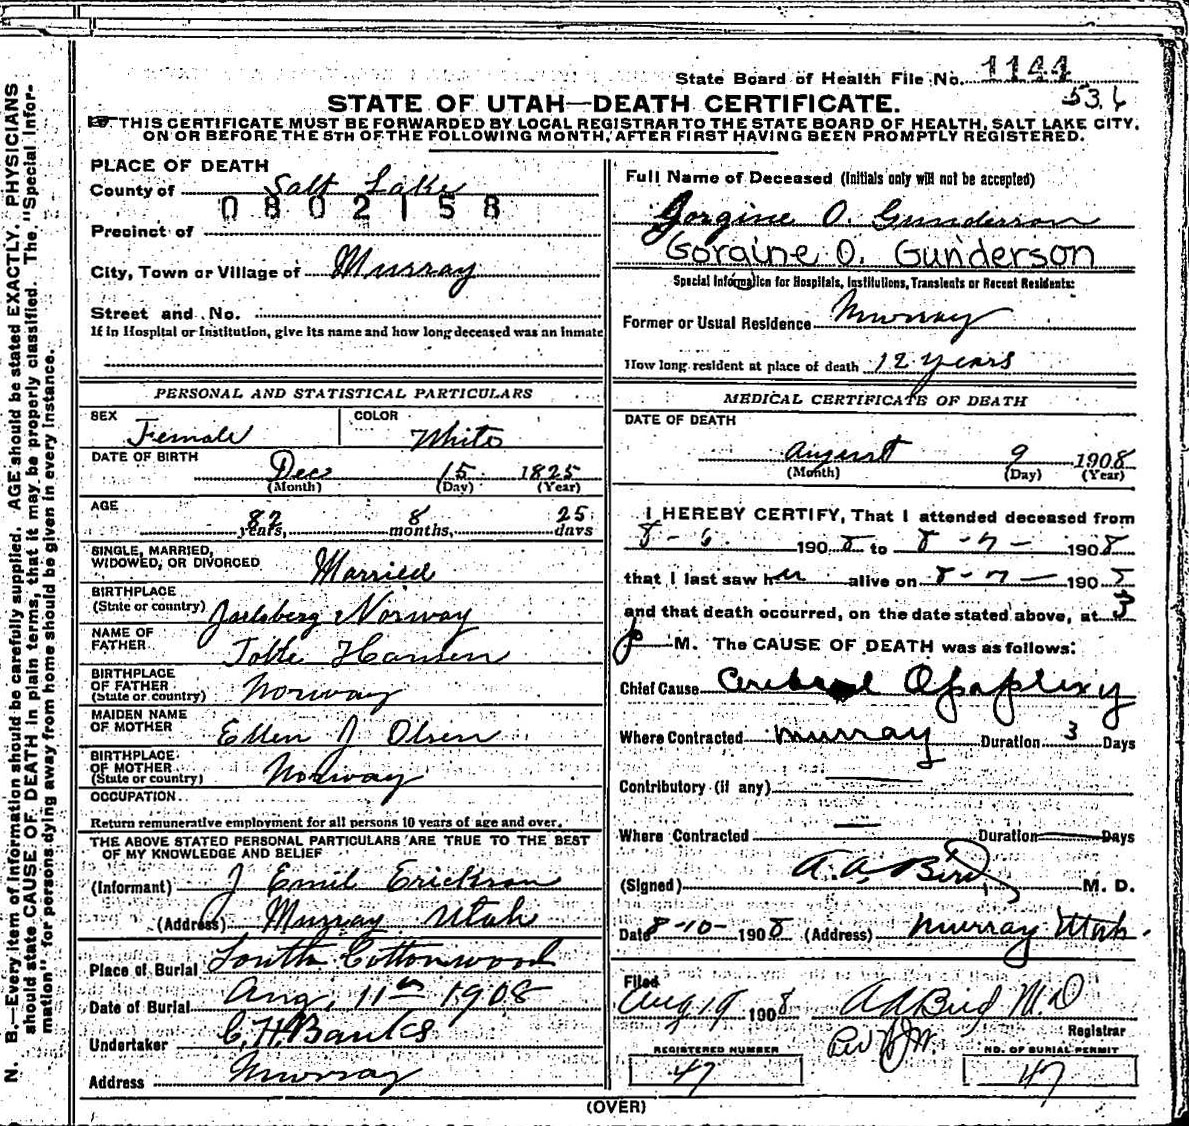 State Board of Health File No. 1144
53.6
STATE OF UTAH—DEATH CERTIFICATE.
THIS CERTIFICATE MUST BE FORWARDED BY LOCAL REGISTRAR TO THE STATE BOARD OF HEALTH, SALT LAKE CITY,
ON OR BEFORE THE 5TH OF THE FOLLOWING MONTH, AFTER FIRST HAVING BEEN PROMPTLY REGISTERED.
PLACE OF DEATH
County of Salt Lake
0802158
Precinct of
City, Town or Village of Murray
Street and No.
If in Hospital or Institution, give its name and how long deceased was an inmate
PERSONAL AND STATISTICAL PARTICULARS
SEX Female COLOR White
DATE OF BIRTH Dec 15 1825
(Month) (Day) (Year)
AGE 82 years, 8 months, 25 days
SINGLE, MARRIED,
WIDOWED, OR DIVORCED Married
BIRTHPLACE
(State or country) Jarlsberg Norway
NAME OF
FATHER Tolle Hansen
BIRTHPLACE
OF FATHER
(State or country) Norway
MAIDEN NAME
OF MOTHER Ellen J Olsen
BIRTHPLACE
OF MOTHER
(State or country) Norway
OCCUPATION
Return remunerative employment for all persons 10 years of age and over.
THE ABOVE STATED PERSONAL PARTICULARS ARE TRUE TO THE BEST
OF MY KNOWLEDGE AND BELIEF
(Informant) J Emil Erickson
(Address) Murray Utah
Place of Burial South Cottonwood
Date of Burial Aug, 11th 1908
Undertaker C. H. Banks
Address Murray
Full Name of Deceased (Initials only will not be accepted)
Gorgine O. Gunderson
Goraine O. Gunderson
Special Information for Hospitals, Institutions, Transients or Recent Residents:
Former or Usual Residence Murray
How long resident at place of death 12 years
MEDICAL CERTIFICATE OF DEATH
DATE OF DEATH
August 9 1908
(Month) (Day) (Year)
I HEREBY CERTIFY, That I attended deceased from
8-6. 1908 to 8-7- 1908
that I last saw her alive on 8-7- 1908
and that death occurred, on the date stated above, at 3
p M. The CAUSE OF DEATH was as follows:
Chief Cause Cerebral Opaplexy
Where Contracted Murray Duration 3 Days
Contributory (if any)
Where Contracted Duration Days
(Signed) A. A. Bird, M. D.
Date 8-10-1908 (Address) Murray Utah.
Filed
Aug 19 1908 A A Bird M D
Registrar
REGISTERED NUMBER
47
NO. OF BURIAL PERMIT
47
(OVER)
N. B.—Every item of information should be carefully supplied. AGE should be stated EXACTLY. PHYSICIANS
should state CAUSE OF DEATH in plain terms, that it may be properly classified. The "Special Infor-
mation" for persons dying away from home should be given in every instance.